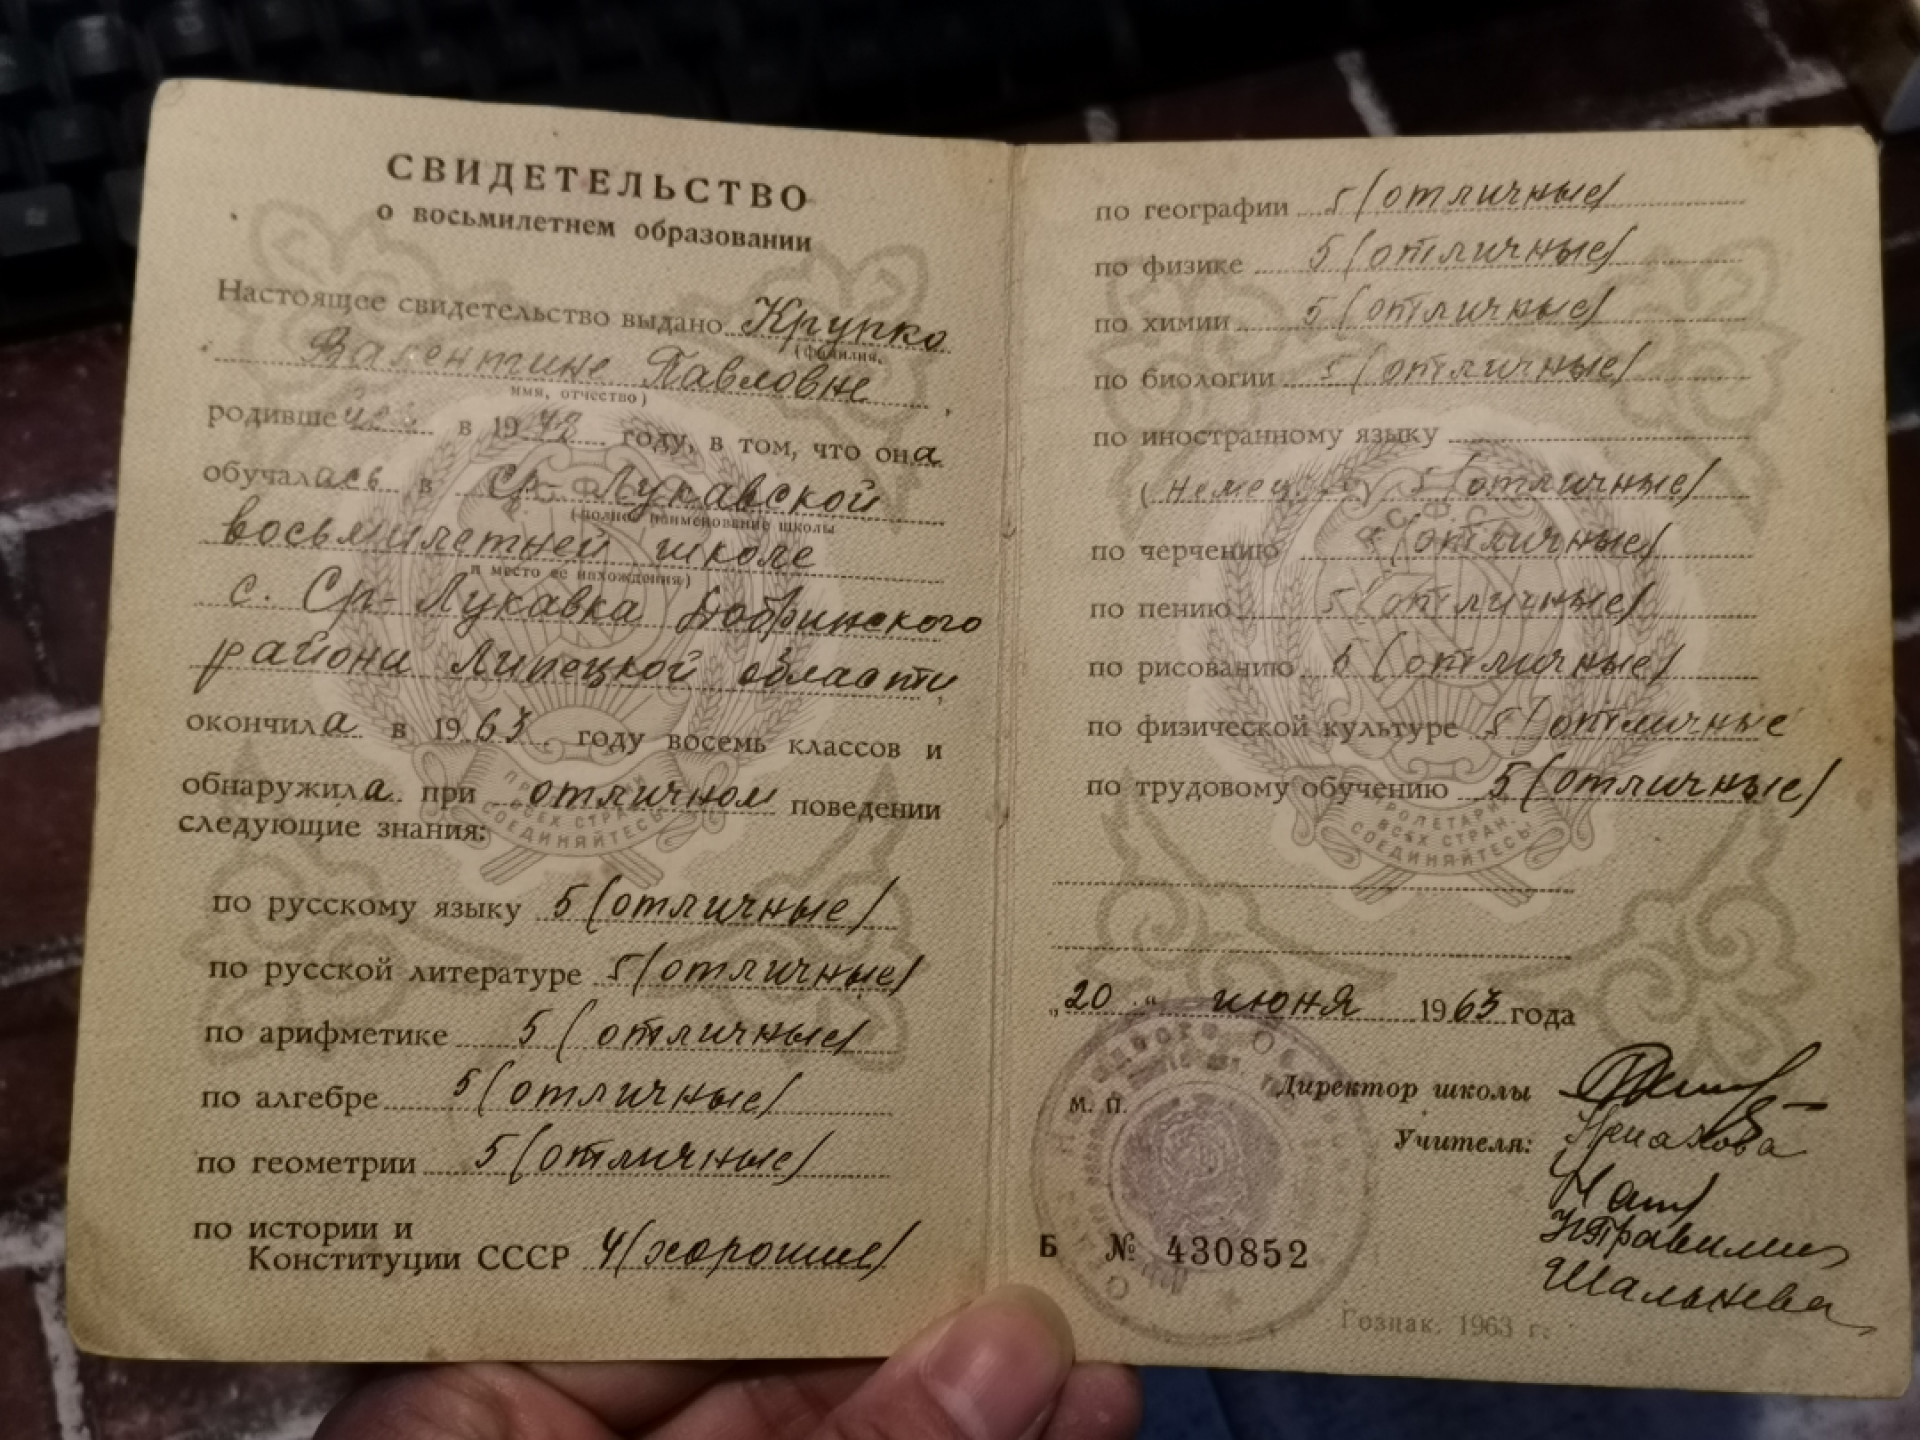 СВИДЕТЕЛЬСТВО
о восьмилетнем образовании
Настоящее свидетельство выдано Крупко
(фамилия,
Валентине Павловне
имя, отчество)
родившейся в 19 году, в том, что она
обучалась в Ср-Лукавской
(полное наименование школы
восьмилетней школе
и место ее нахождения)
с. Ср-Лукавка Добринского
района Липецкой области,
окончила в 1963 году восемь классов и
обнаружила при отличном поведении
следующие знания:
по русскому языку 5 (отличные)
по русской литературе 5 (отличные)
по арифметике 5 (отличные)
по алгебре 5 (отличные)
по геометрии 5 (отличные)
по истории и
Конституции СССР 4 (хорошие)
по географии 5 (отличные)
по физике 5 (отличные)
по химии 5 (отличные)
по биологии 5 (отличные)
по иностранному языку
5 (отличные)
по черчению (отличные)
по пению 5 (отличные)
по рисованию 5 (отличные)
по физической культуре 5 (отличные
по трудовому обучению 5 (отличные)
ПРОЛЕТАРИИ
ВСЕХ СТРАН,
СОЕДИНЯЙТЕСЬ
„20“ июня 1963 года
М. П.
Директор школы
Учителя:
Шальнева
Б № 430852
Гознак. 1963 г.